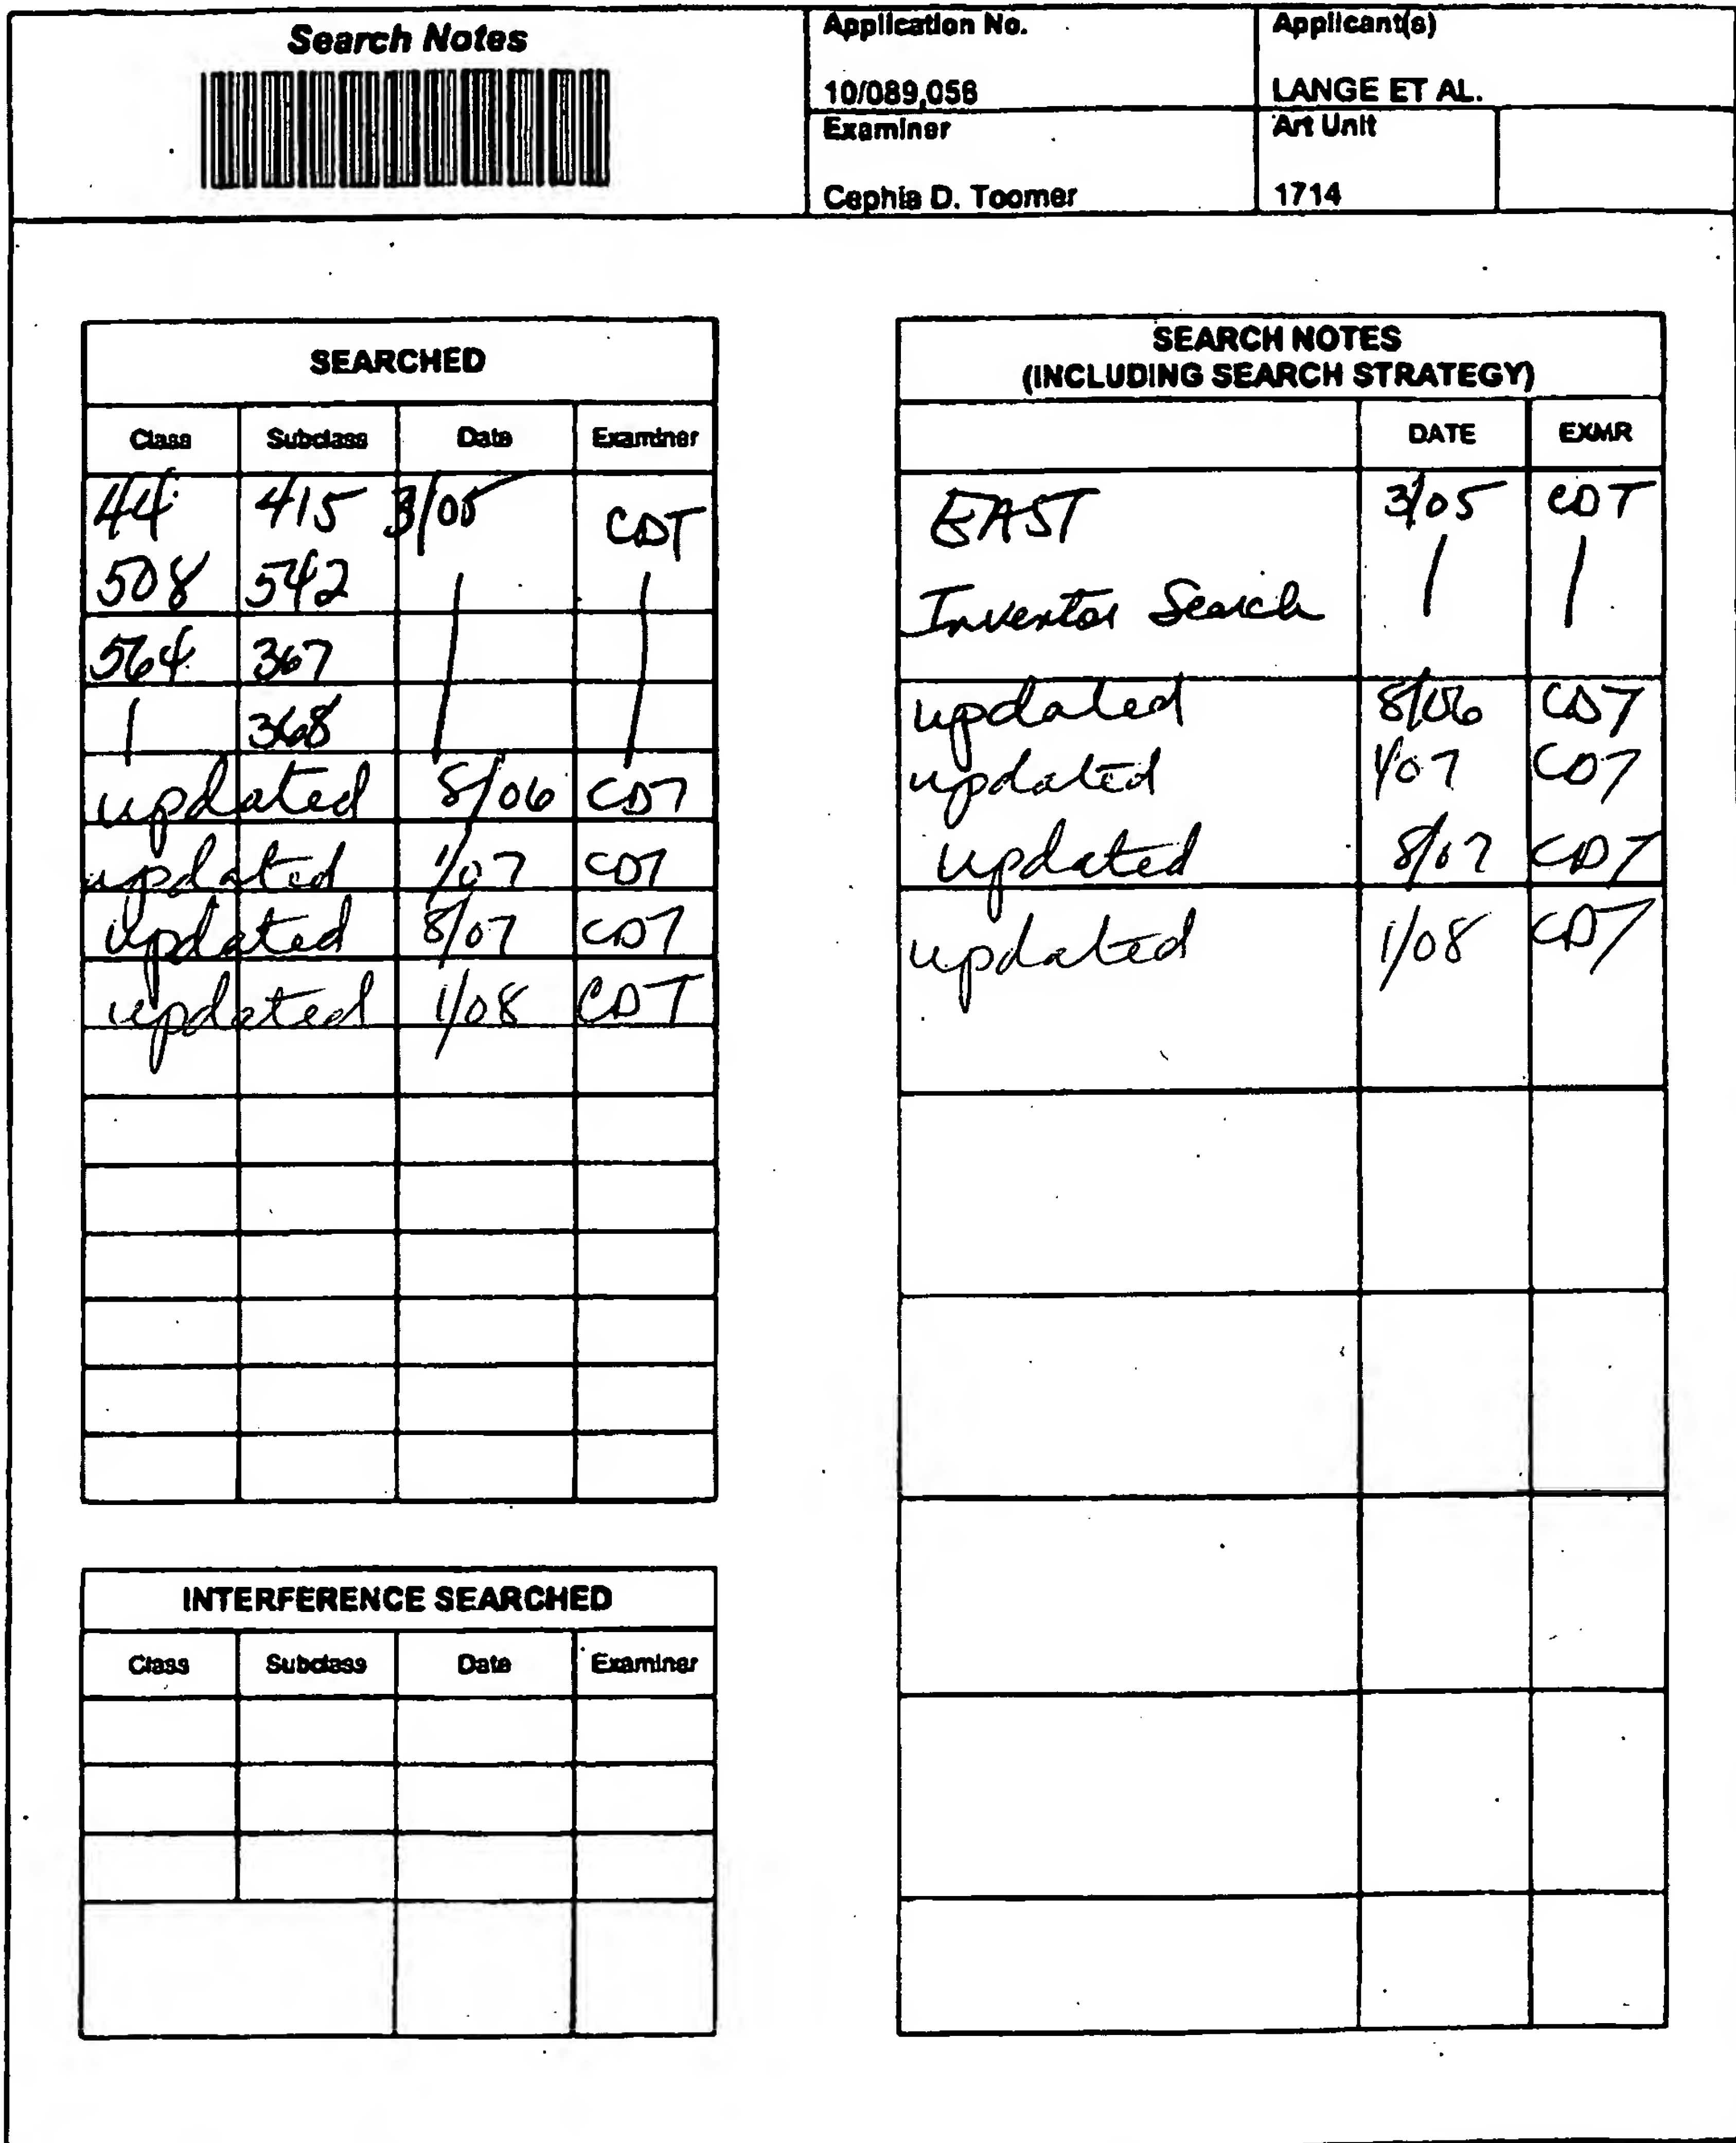 Search Notes
Application No.
10/089,056
Applicant(s)
LANGE ET AL.
Examiner
Cephia D. Toomer
Art Unit
1714
SEARCHED
Class Subclass Date Examiner
44 415 3/05 CDT
508 542
564 367
368
updated 8/06 CDT
updated 1/07 CDT
updated 8/07 CDT
updated 1/08 CDT
INTERFERENCE SEARCHED
Class Subclass Date Examiner
SEARCH NOTES
(INCLUDING SEARCH STRATEGY)
DATE EXMR
EAST 3/05 CDT
Inventor Search
updated 8/06 CDT
updated 1/07 CDT
updated 8/07 CDT
updated 1/08 CDT